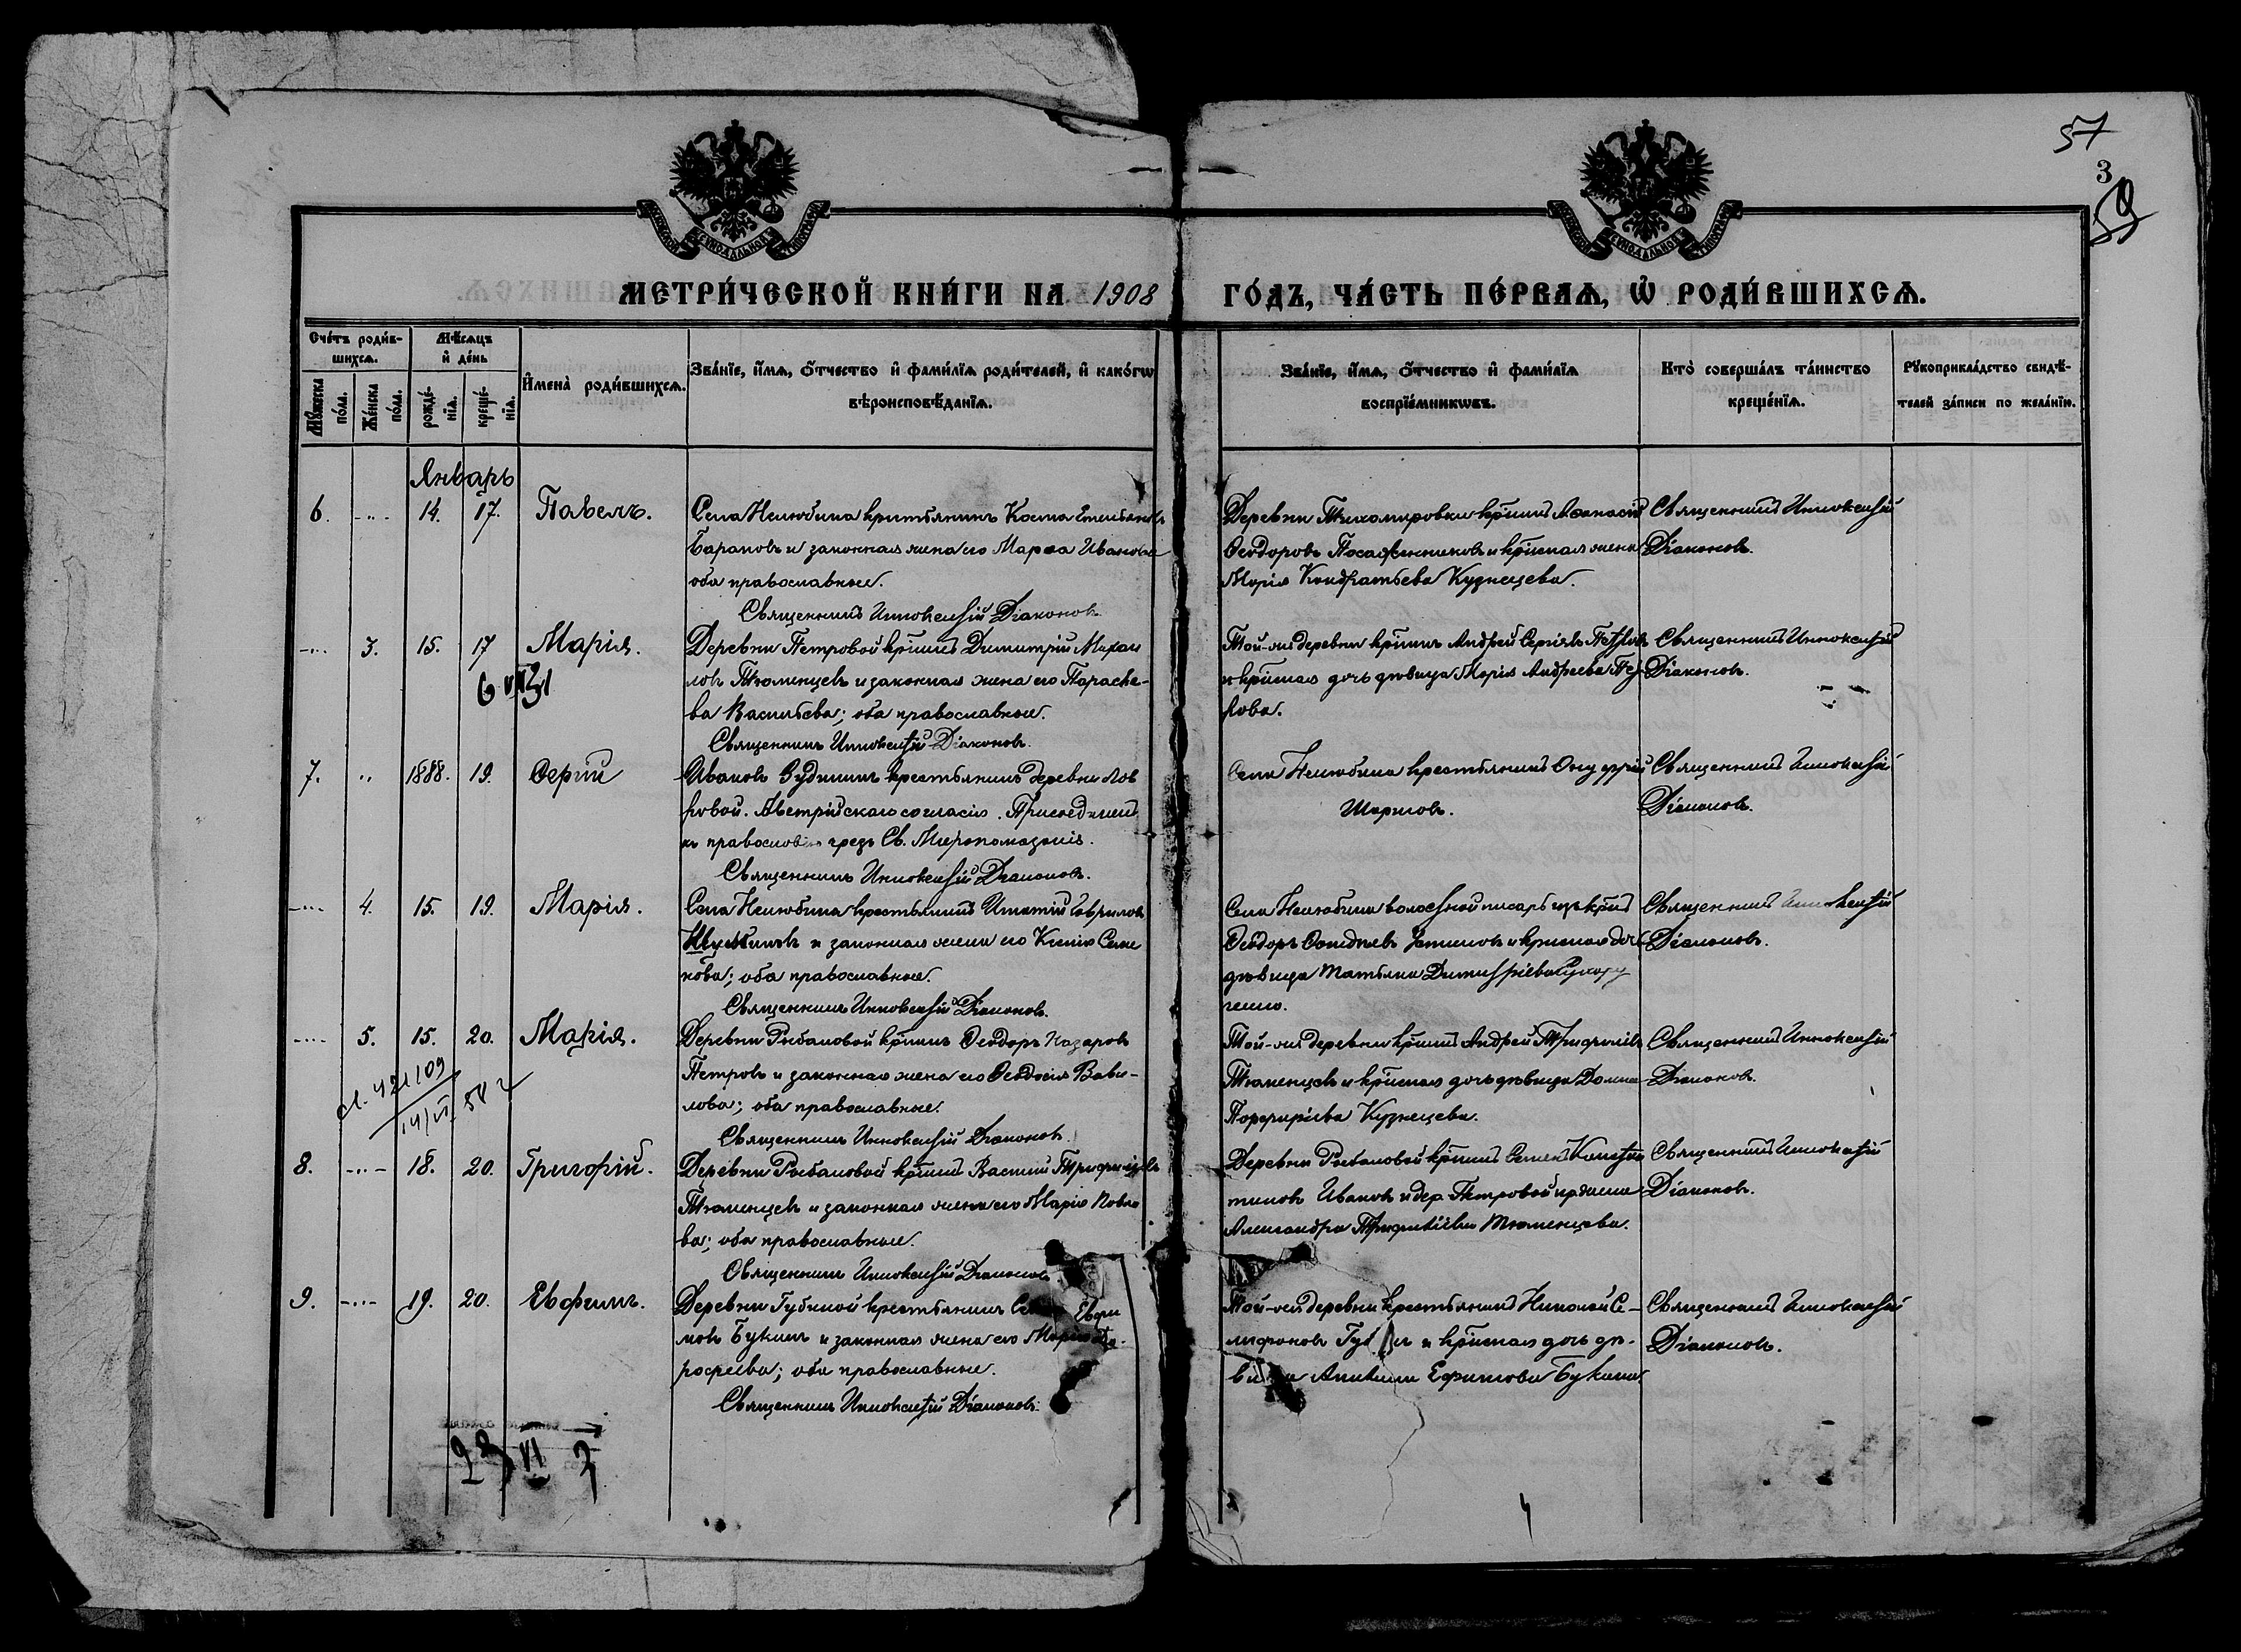 57
3
59
МЕТРИ́ЧЕСКОЙ КНИ́ГИ НА 1908 ГО́ДЪ, ЧА́СТЬ ПЕ́РВАѦ, Ѡ҆ РОДИ́ВШИХСѦ.
Сче́тъ роди́в-
шихсѧ.
Мѣ́сѧцъ
и҆ де́нь
И҆мена̀ роди́вшихсѧ.
Зва́нїе, и҆́мѧ, ѻ҆́тчество и҆ фами́лїѧ роди́телей, и҆ како́гѡ
вѣроисповѣ́данїѧ.
Зва́нїе, и҆́мѧ, ѻ҆́тчество и҆ фами́лїѧ
воспрїе́мникѡвъ.
Кто̀ соверша́лъ та́инство
креще́нїѧ.
Рꙋкоприкла́дство свидѣ́-
телей за́писи по жела́нїю.
Мꙋ́жеска
по́ла.
Же́нска
по́ла.
рожде́-
нїѧ.
креще́-
нїѧ.
Январь
6. -"- 14. 17. Павелъ.
Села Нелюбина крестьянинъ Косма Емельяновъ
Барановъ и законная жена его Марѳа Иванова
оба православные.
Священникъ Иннокентій Діаконовъ
Деревни Тихомировки кр̄нинъ Аѳанасій
Ѳеодоровъ и кр̄нская жена
Марія Кондратьева Кузнецева.
Священникъ Иннокентій
Діаконовъ.
-"- 3. 15. 17 Марія.
Деревни Петровой кр̄нинъ Димитрій Михаи
ловъ Тюменцевъ и законная жена его Параске-
ва Васильева; оба православные.
Священникъ Иннокентій Діаконовъ.
6
Той-же деревни кр̄нинъ Андрей Сергіевъ Петровъ
и кр̄нская дочь дѣвица Марія Андреева Пет
рова.
Священникъ Иннокентій
Діаконовъ.
7. " 1888. 19. Сергій
Ивановъ Зудилинъ крестьянинъ деревни
Австрійскаго согласія. Присоединен
къ православію чрезъ Св. Мѵропомазаніе.
Священникъ Иннокентій Діаконовъ.
Села Нелюбина крестьянинъ Онуфрій
Шариповъ.
Священникъ Иннокентій
Діаконовъ.
-"- 4. 15. 19. Марія.
Села Нелюбина крестьянинъ Игнатій Гавриловъ
и законная жена его Ксенія Семе
нова; оба православные.
Священникъ Иннокентій Діаконовъ.
Села Нелюбина волостной писарь изъ кр̄нъ
Ѳеодоръ и кр̄нская дочь
дѣвица Татьяна Димитріева
Священникъ Иннокентій
Діаконовъ.
-"- 5. 15. 20. Марія.
Деревни Рыбаловой кр̄нинъ Ѳеодоръ Назаровъ
Петровъ и законная жена его Ѳеодосія Вави-
лова; оба православные.
Священникъ Иннокентій Діаконовъ.
Той-же деревни кр̄нинъ Андрей Трифиліевъ
Тюменцевъ и кр̄нская дочь дѣвица Домна
Порфиріева Кузнецева.
Священникъ Иннокентій
Діаконовъ.
8. -"- 18. 20. Григорій.
Деревни Рыбаловой кр̄нинъ Василій Трифиліевъ
Тюменцевъ и законная жена его Марія Павло
ва; оба православные.
Священникъ Иннокентій Діаконовъ
Деревни Рыбаловой кр̄нинъ Семенъ Констан
тиновъ Ивановъ и дер. Петровой
Александра Трифиліева Тюменцева.
Священникъ Иннокентій
Діаконовъ.
9. -"- 19. 20. Евфимъ.
Деревни Губиной крестьянинъ Евфи
мовъ Букинъ и законная жена его Марія До-
роѳеева; оба православные.
Священникъ Иннокентій Діаконовъ.
Той-же деревни крестьянинъ Николай Се-
лифоновъ и кр̄нская дочь дѣ-
вица Ефимова Букина.
Священникъ Иннокентій
Діаконовъ.